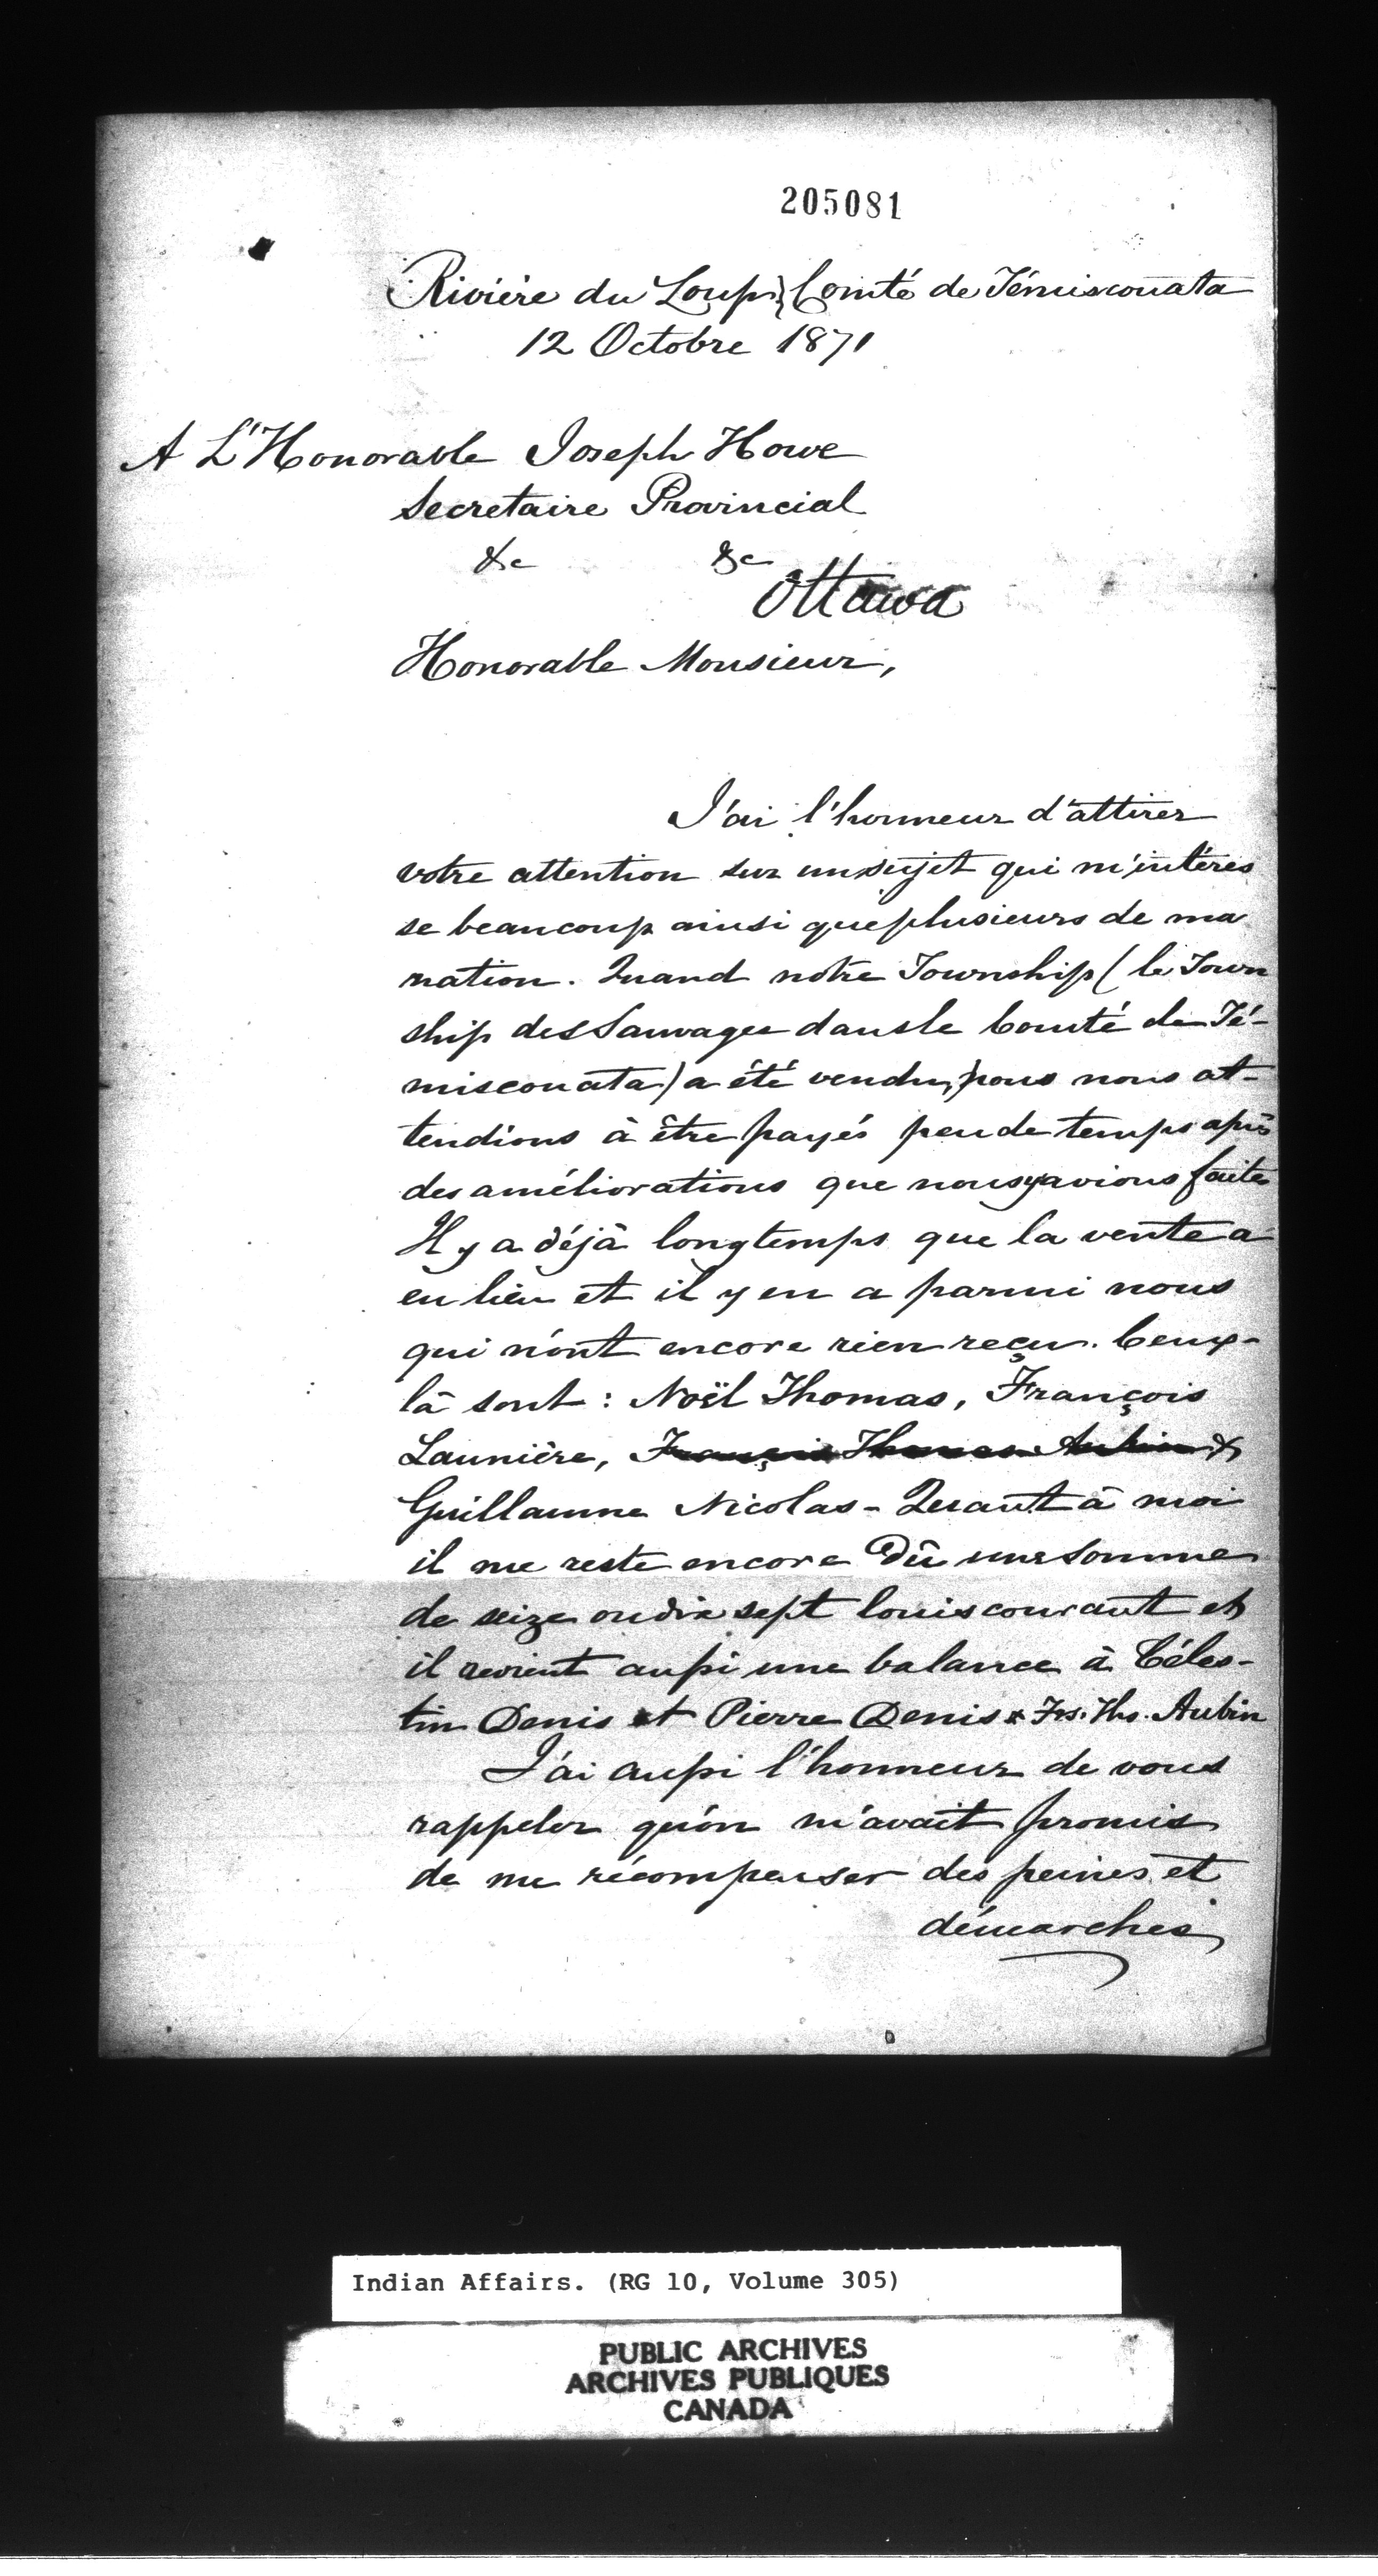 205081
Rivière du Loup, Comté de Témiscouata
12 Octobre 1871
A L'Honorable Joseph Howe
Secretaire Provincial
&c &c
Ottawa
Honorable Monsieur,
J'ai l'honneur d'attirer
votre attention sur un sujet qui m'intéres
se beaucoup ainsi que plusieurs de ma
nation. Quand notre Township (le Town
ship des Sauvages dans le Comté de Té-
misconata) a été vendu, nous nous at-
tendions à être payés peu de temps après
des améliorations que nous y avions faites
Il y a déjà longtemps que la vente a
eu lieu et il y en a parmi nous
qui n'ont encore rien reçu. Ceux-
là sont : Noël Thomas, François
Launière, François Thomas Aubin &
Guillaume Nicolas - Quant à moi
il me reste encore dû une somme
de seize ou dix sept louis courant et
il revient aussi une balance à Céles-
tin Denis et Pierre Denis & Frs. Ths. Aubin
J'ai aussi l'honneur de vous
rappeler qu'on m'avait promis
de me récompenser des peines et
démarches
Indian Affairs. (RG 10, Volume 305)
PUBLIC ARCHIVES
ARCHIVES PUBLIQUES
CANADA